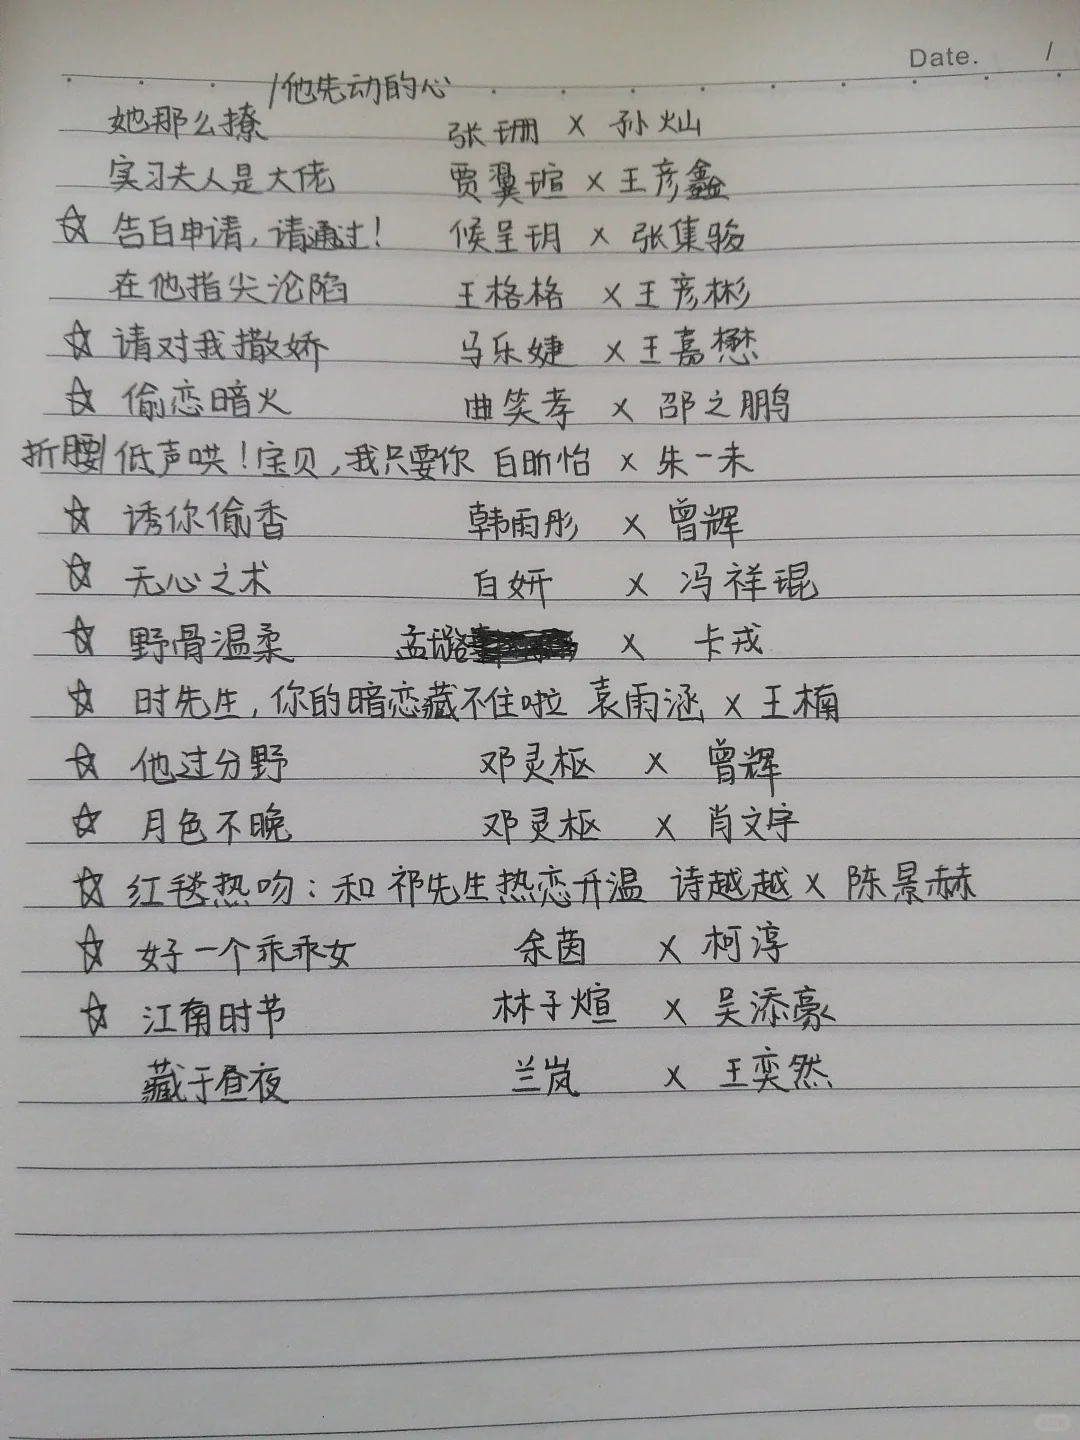 Date. /
/他先动的心
她那么撩 张珊 × 孙灿
实习夫人是大佬 贾翼瑄 × 王彦鑫
☆ 告白申请,请通过! 候呈玥 × 张集骏
在他指尖沦陷 王格格 × 王彦彬
☆ 请对我撒娇 马乐婕 × 王嘉懋
☆ 偷恋暗火 曲笑孝 × 邵之鹏
折腰/低声哄!宝贝,我只要你 白昕怡 × 朱一未
☆ 诱你偷香 韩雨彤 × 曾辉
☆ 无心之术 白妍 × 冯祥琨
☆ 野骨温柔 孟璐 × 卡戎
☆ 时先生,你的暗恋藏不住啦 袁雨涵 × 王楠
☆ 他过分野 邓灵枢 × 曾辉
☆ 月色不晚 邓灵枢 × 肖文宇
☆ 红毯热吻:和祁先生热恋升温 诗越越 × 陈景赫
☆ 好一个乖乖女 余茵 × 柯淳
☆ 江南时节 林子煊 × 吴添豪
藏于昼夜 兰岚 × 王奕然